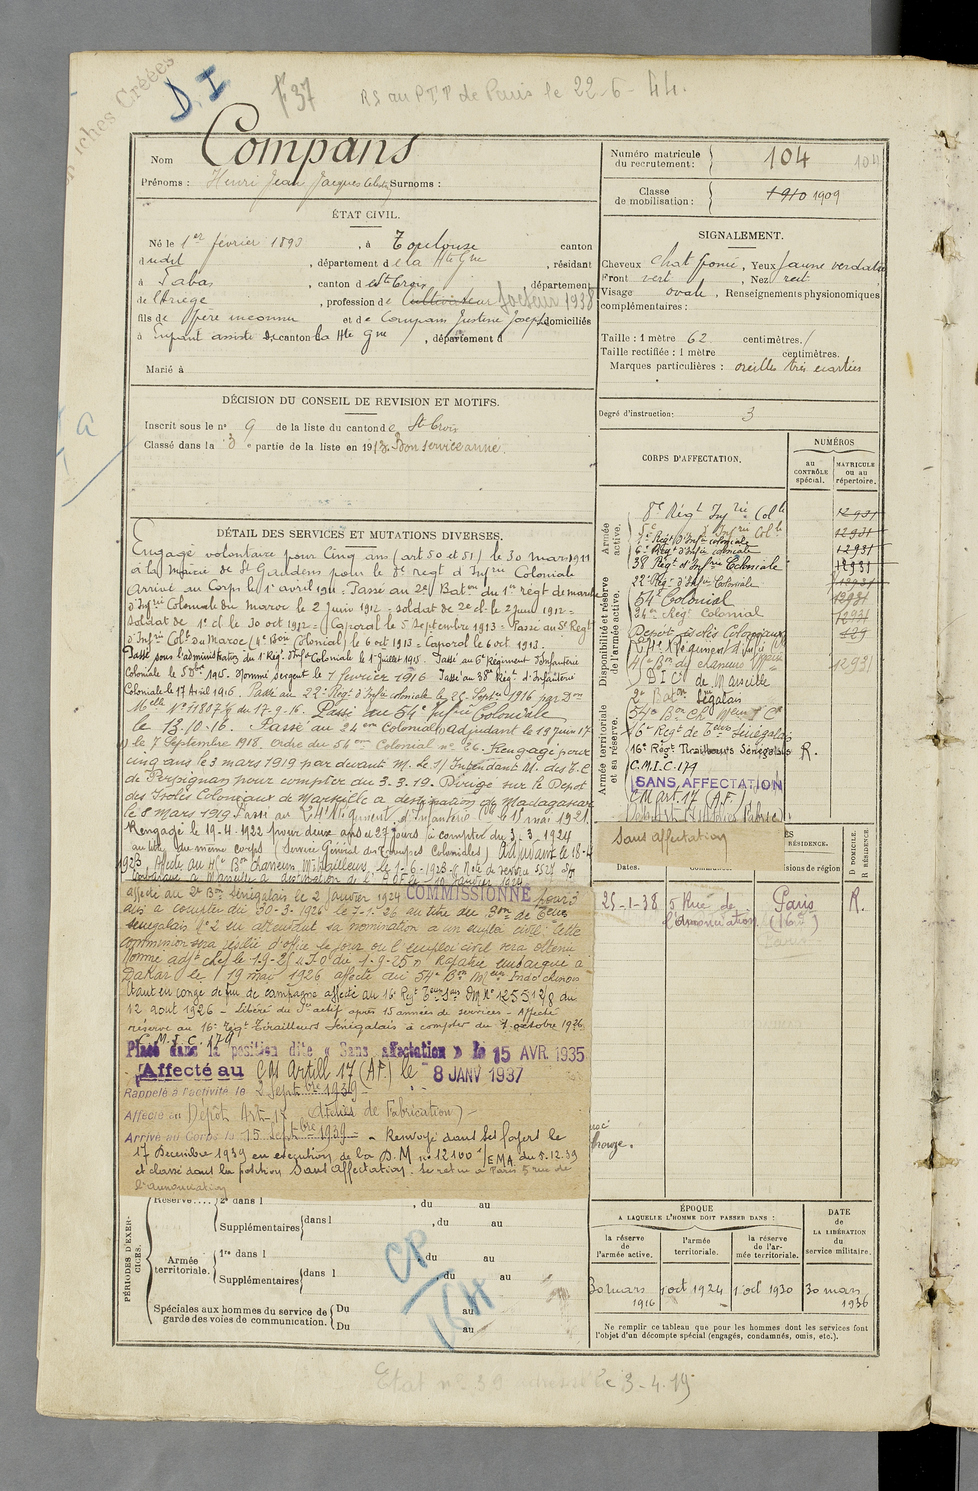 D. I
f. 37
RS au PTT de Paris le 22-6-44.
Fiches Créées
Nom Compans
Prénoms : Henri Jean Jacques Surnoms :
Numéro matricule du recrutement : 104
104
Classe de mobilisation : 1910 1909
ÉTAT CIVIL.
Né le 1er février 1893, à Toulouse canton
dudit, département de la Hte Gne, résidant
à Fabas, canton de Ste Croix département
de l'Ariege, profession de Cultivateur facteur 1938
fils de père inconnu et de Compans Justine Josephe domiciliés
à Enfant assisté de canton la Hte Gne, département d
Marié à
SIGNALEMENT.
Cheveux chat foncé, Yeux jaune verdatre
Front vert, Nez rect
Visage ovale, Renseignements physionomiques
complémentaires :
Taille : 1 mètre 62 centimètres.
Taille rectifiée : 1 mètre centimètres.
Marques particulières : oreilles très écartées
Degré d'instruction : 3
DÉCISION DU CONSEIL DE REVISION ET MOTIFS.
Inscrit sous le n° 9 de la liste du canton de Ste Croix
Classé dans la 3e partie de la liste en 1913. Bon service armé.
DÉTAIL DES SERVICES ET MUTATIONS DIVERSES.
Engagé volontaire pour Cinq ans (art 50 et 51) le 30 mars 1911
à la Mairie de St Gaudens pour le 8e regt d'Infrie Coloniale
Arrivé au Corps le 1er avril 1911 = Passé au 2e Baton du 1er regt de marche
d'Infrie Coloniale du Maroc le 2 Juin 1912 = soldat de 2e cl. le 2 juin 1912 =
Soldat de 1e cl le 30 oct 1912 = Caporal le 5 Septembre 1913 = Passé au 5e Regt
d'Infie Colle du Maroc (4e Bon Colonial) le 6 oct 1913 = Caporal le 6 oct 1913.
Passé sous l'administration du 1er Régt d'Infie Coloniale le 1er Juillet 1915. Passé au 6e Régiment d'Infanterie
Coloniale le 5 Dbre 1915. Nommé Sergent le 1 fevrier 1916 Passé au 38e Régt d'Infanterie
Coloniale le 17 Avril 1916. Passé au 22e Régt d'Infie coloniale le 25 Septre 1916 par Don
Melle N° 11807 K du 17-9-16. Passé au 54e Infie Coloniale
le 13-10-16. Passé au 24eme Colonial, adjudant le 19 Juin 17
le 7 Septembre 1918. Ordre du 54eme Colonial n° 26. Rengagé pour
cinq ans le 3 mars 1919 par devant M. le S/Intendant M. des T.C
de Perpignan pour compter du 3.3.19. Dirigé sur le Depot
des Isolés Coloniaux de Marseille a destination de Madagascar
le 8 mars 1919 Passé au 24e Régiment d'Infanterie Cle le 15 mai 1921.
Rengagé le 19-4-1922 pour deux ans et 27 jours à compter du 3-3-1924
au titre du même corps (Service Général des Troupes Coloniales) Adjudant le 18-4
1923, Affecté au 41e Bon Chasseurs Mitrailleurs le 1-6-1923
affecté au 2e Bon Sénégalais le 2 janvier 1924 COMMISSIONNÉ pour 3
ans à compter du 30-3-1926 le 7-1-26 au titre du Bon de Teurs
Sénégalais N°2 en attendant sa nomination à un emploi civil. Cette
commission sera résiliée d'office le jour où l'emploi civil sera obtenu
Nommé adjt chef le 1-9-25 Rapatrié embarqué à
Dakar le 19 mai 1926 affecté au 54e Bon Meurs Indochinois
étant en congé de fin de campagne affecté au 16e Régt Teurs Sais DM N° 12551 2/8 du
12 aout 1926 - Libéré du Sce actif après 15 années de services - Affecté
réserve au 16e Régt Tirailleurs Sénégalais à compter du 7 octobre 1926
C. M. I. C. 179
Placé dans la position dite « Sans affectation » le 15 AVR. 1935
Affecté au CM Artill. 17 (AF) le 8 JANV 1937
Rappelé à l'activité le 2 Septbre 1939
Affecté au Dépôt Art 17 (Atelier de Fabrication)
Arrivé au Corps le 15 Septbre 1939 - Renvoyé dans ses foyers le
17 Décembre 1939 en exécution de la D.M n° 12100 1/EMA du 5.12.39
et classé dans la position Sans Affectation. Se retire à Paris 5 rue de
l'Annonciation
CORPS D'AFFECTATION.
NUMÉROS
au CONTRÔLE spécial.
MATRICULE ou au répertoire.
Armée active.
8e Régt Infrie Colle 12931
5e Infrie Colle 12931
1er Régt d'Infie coloniale
6e Régt d'Infie coloniale 12931
38e Régt d'Infrie Coloniale 12931
Disponibilité et réserve de l'armée active.
22e Régt d'Infie Coloniale 12931
54e Colonial 12931
24me Régt Colonial 12931
Depot Isolés Coloniaux
24e Régiment d'Infie Cle
41e Bon de chasseurs 12931
D I C de Marseille
2e Baton Sénégalais
54e Bon
Armée territoriale et sa réserve.
16e Régt de Teurs Sénégalais
16e Régt Tirailleurs Sénégalais R.
C.M.I.C. 179
SANS AFFECTATION
CM Art. 17 (A.F.)
Sans affectation
RÉSIDENCE.
Dates.
sions de région
D DOMICILE.
R RÉSIDENCE.
25-1-38 5 Rue de l'Annonciation Paris (16e) R.
PÉRIODES D'EXERCICES.
Réserve.... 2e dans l , du au
Supplémentaires dans l , du au
Armée territoriale. 1re dans l , du au
Supplémentaires dans l , du au
Spéciales aux hommes du service de garde des voies de communication.
Du au
Du au
CP
16H
ÉPOQUE
A LAQUELLE L'HOMME DOIT PASSER DANS :
la réserve de l'armée active.
l'armée territoriale.
la réserve de l'armée territoriale.
DATE de LA LIBÉRATION du service militaire.
30 mars 1916
1 oct 1924
1 oct 1930
30 mars 1936
Ne remplir ce tableau que pour les hommes dont les services font
l'objet d'un décompte spécial (engagés, condamnés, omis, etc.).
Etat n° 39 adressé le 3-4-19